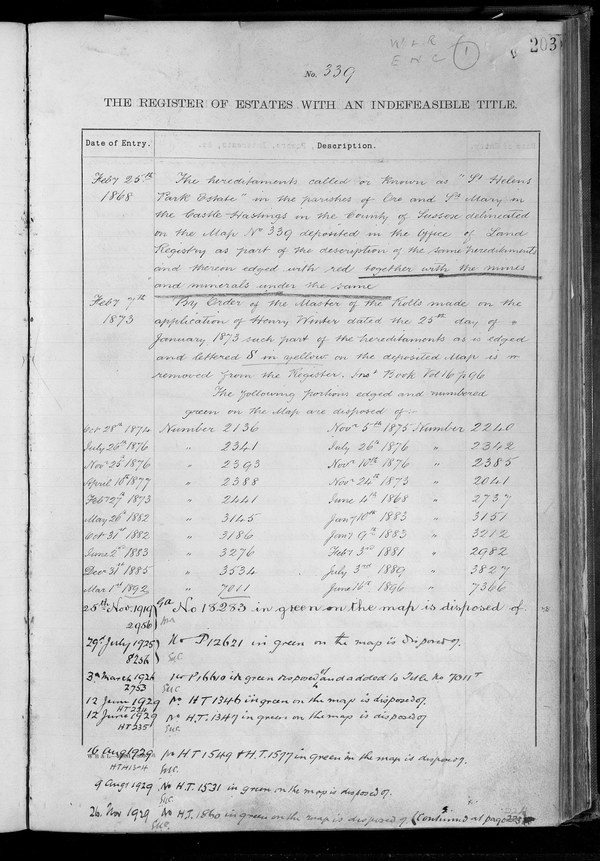 W & R
E N C 1
203
No. 339
THE REGISTER OF ESTATES WITH AN INDEFEASIBLE TITLE.
Date of Entry. Description.
Feby 25th 1868 The hereditaments called or known as "St Helens
Park Estate" in the parishes of Ore and St Mary in
the Castle Hastings in the County of Sussex delineated
on the Map No 339 deposited in the Office of Land
Registry as part of the description of the same hereditaments
and thereon edged with red together with the mines
and minerals under the same
Feby 7th 1873 By Order of the Master of the Rolls made on the
application of Henry Winter dated the 25th day of
January 1873 such part of the hereditaments as is edged
and lettered S in yellow on the deposited Map is
removed from the Register. Inst Book Vol 16 p 96
The following portions edged and numbered
green on the Map are disposed of:-
Oct 28th 1874 Number 2136 Novr 5th 1875 Number 2240
July 26th 1876 " 2341 July 26th 1876 " 2342
Novr 25th 1876 " 2393 Novr 10th 1876 " 2385
April 10th 1877 " 2388 Novr 24th 1873 " 2041
Feby 27th 1873 " 2441 June 4th 1868 " 2737
May 26th 1882 " 3145 Jany 10th 1883 " 3151
Octr 31st 1882 " 3186 Jany 9th 1883 " 3212
June 2nd 1883 " 3276 Feby 3rd 1881 " 2982
Decr 31st 1885 " 3534 July 3rd 1889 " 3827
Mar 1st 1892 " 7011 June 16th 1896 " 7366
25th Nov. 1919 No 18283 in green on the map is disposed of.
2956
29th July 1925 No P12621 in green on the map is disposed of.
8256
3rd March 1926 No P16610 in green disposed of and added to Title No 7011
2753
12 June 1929 No HT 1346 in green on the map is disposed of.
HT234
12 June 1929 No H.T. 1347 in green on the map is disposed of
HT235
16 Aug 1929 No HT 1549 & H.T. 1577 in green on the map is disposed of.
9 Augt 1929 No H.T. 1531 in green on the map is disposed of.
26 Nov 1929 No HT. 1860 in green on the map is disposed of (Continued at page